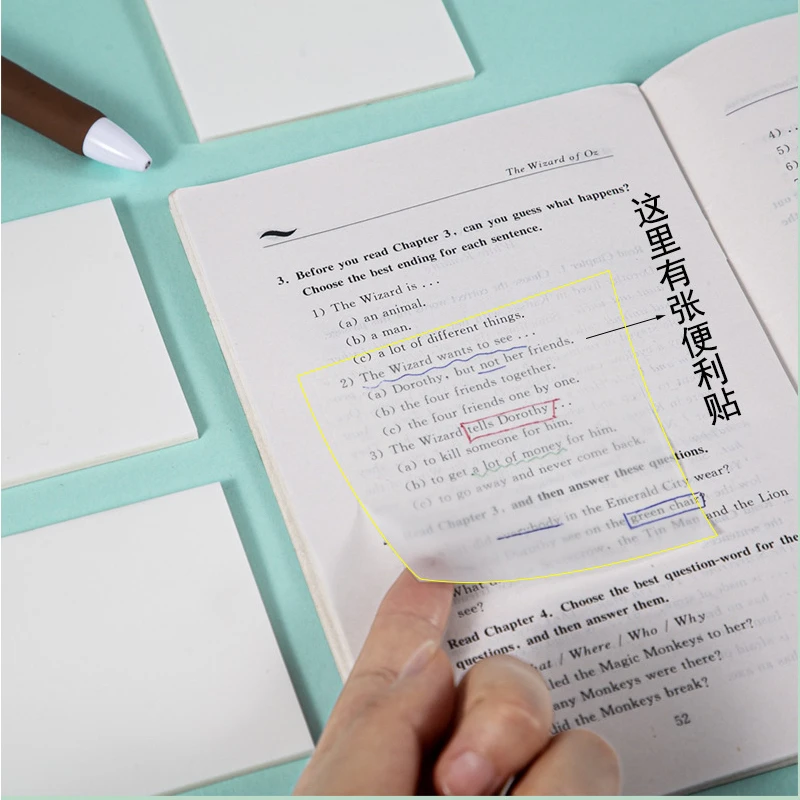 The Wizard of Oz
3. Before you read Chapter 3, can you guess what happens?
Choose the best ending for each sentence.
1) The Wizard is ...
(a) an animal.
(b) a man.
(c) a lot of different things.
2) The Wizard wants to see ...
(a) Dorothy, but not her friends.
(b) the four friends together.
(c) the four friends one by one.
3) The Wizard tells Dorothy ...
(a) to kill someone for him.
(b) to get a lot of money for him.
(c) to go away and never come back.
Read Chapter 3, and then answer these questions.
in the Emerald City wear?
see on the green chair
the Tin Man and the Lion
see?
Read Chapter 4. Choose the best question-word for the
questions, and then answer them.
What / Where / Who / Why
the Magic Monkeys to her?
Monkeys were there?
did the Monkeys break?
52
这里有张便利贴
4)
5)
6)